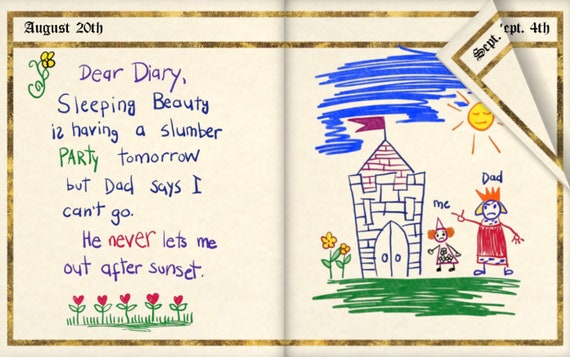 August 20th
Dear Diary,
Sleeping Beauty
is having a slumber
PARTY tomorrow
but Dad says I
can't go.
He never lets me
out after sunset.
Sept. 4th
Sept.
me
Dad